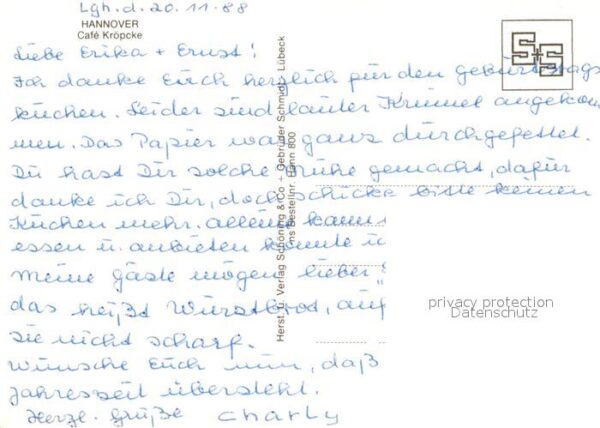 Lgh.d. 20.11.88
HANNOVER
Café Kröpcke
Liebe Erika + Ernst!
Ich danke Euch herzlich für den Geburtstags
kuchen. Leider sind lauter Krümel angekom
men. Das Papier war ganz durchgefettet.
Du hast Dir solche Mühe gemacht, dafür
danke ich Dir, doch schicke bitte keinen
Kuchen mehr. allein kann
essen u. anbieten könnte
meine Gäste mögen lieber
das heißt Wurstbrot, auf
sie nicht scharf.
Wünsche Euch nun, daß
Jahreszeit übersteht.
Herzl. Grüße Charly
Herst. u. Verlag Schöning & Co + Gebrüder Schmidt, Lübeck
Bestellnr. Hann 800
S+S
privacy protection
Datenschutz